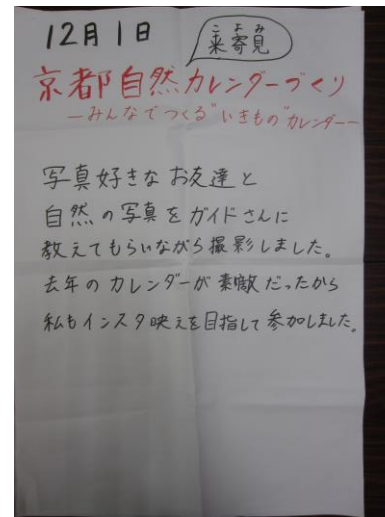 12月1日
来寄見
よみ
京都自然カレンダーづくり
―みんなでつくる"いきもの"カレンダー―
写真好きな お友達と
自然の写真をガイドさんに
教えてもらいながら撮影しました。
去年のカレンダーが素敵だったから
私もインスタ映えを目指して参加しました。